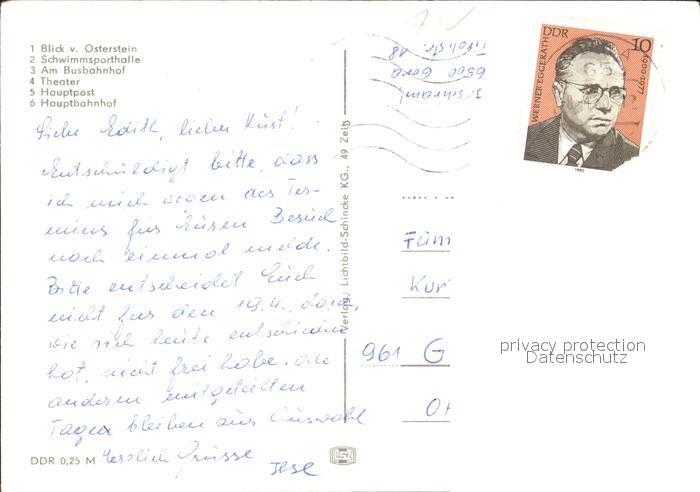 1 Blick v. Osterstein
2 Schwimmsporthalle
3 Am Busbahnhof
4 Theater
5 Hauptpost
6 Hauptbahnhof
Liebe Edith, lieber Kurt!
Entschuldigt bitte, dass
ich mich wegen des Ter-
mins für Euren Besuch
noch einmal melde.
Bitte entscheidet Euch
nicht für den 19.4., da,
wie sich heute entschieden
hat, nicht frei habe. Die
anderen mitgeteilten
Tage bleiben zur Auswahl
Herzlich Grüsse
Ilse
DDR 0,25 M
Verlag: Lichtbild-Schincke KG., 49 Zeitz
6500 Gera
18
DDR
10
WERNER EGGERATH
1900-1977
1980
Fam
Kur
961 G
privacy protection
Datenschutz